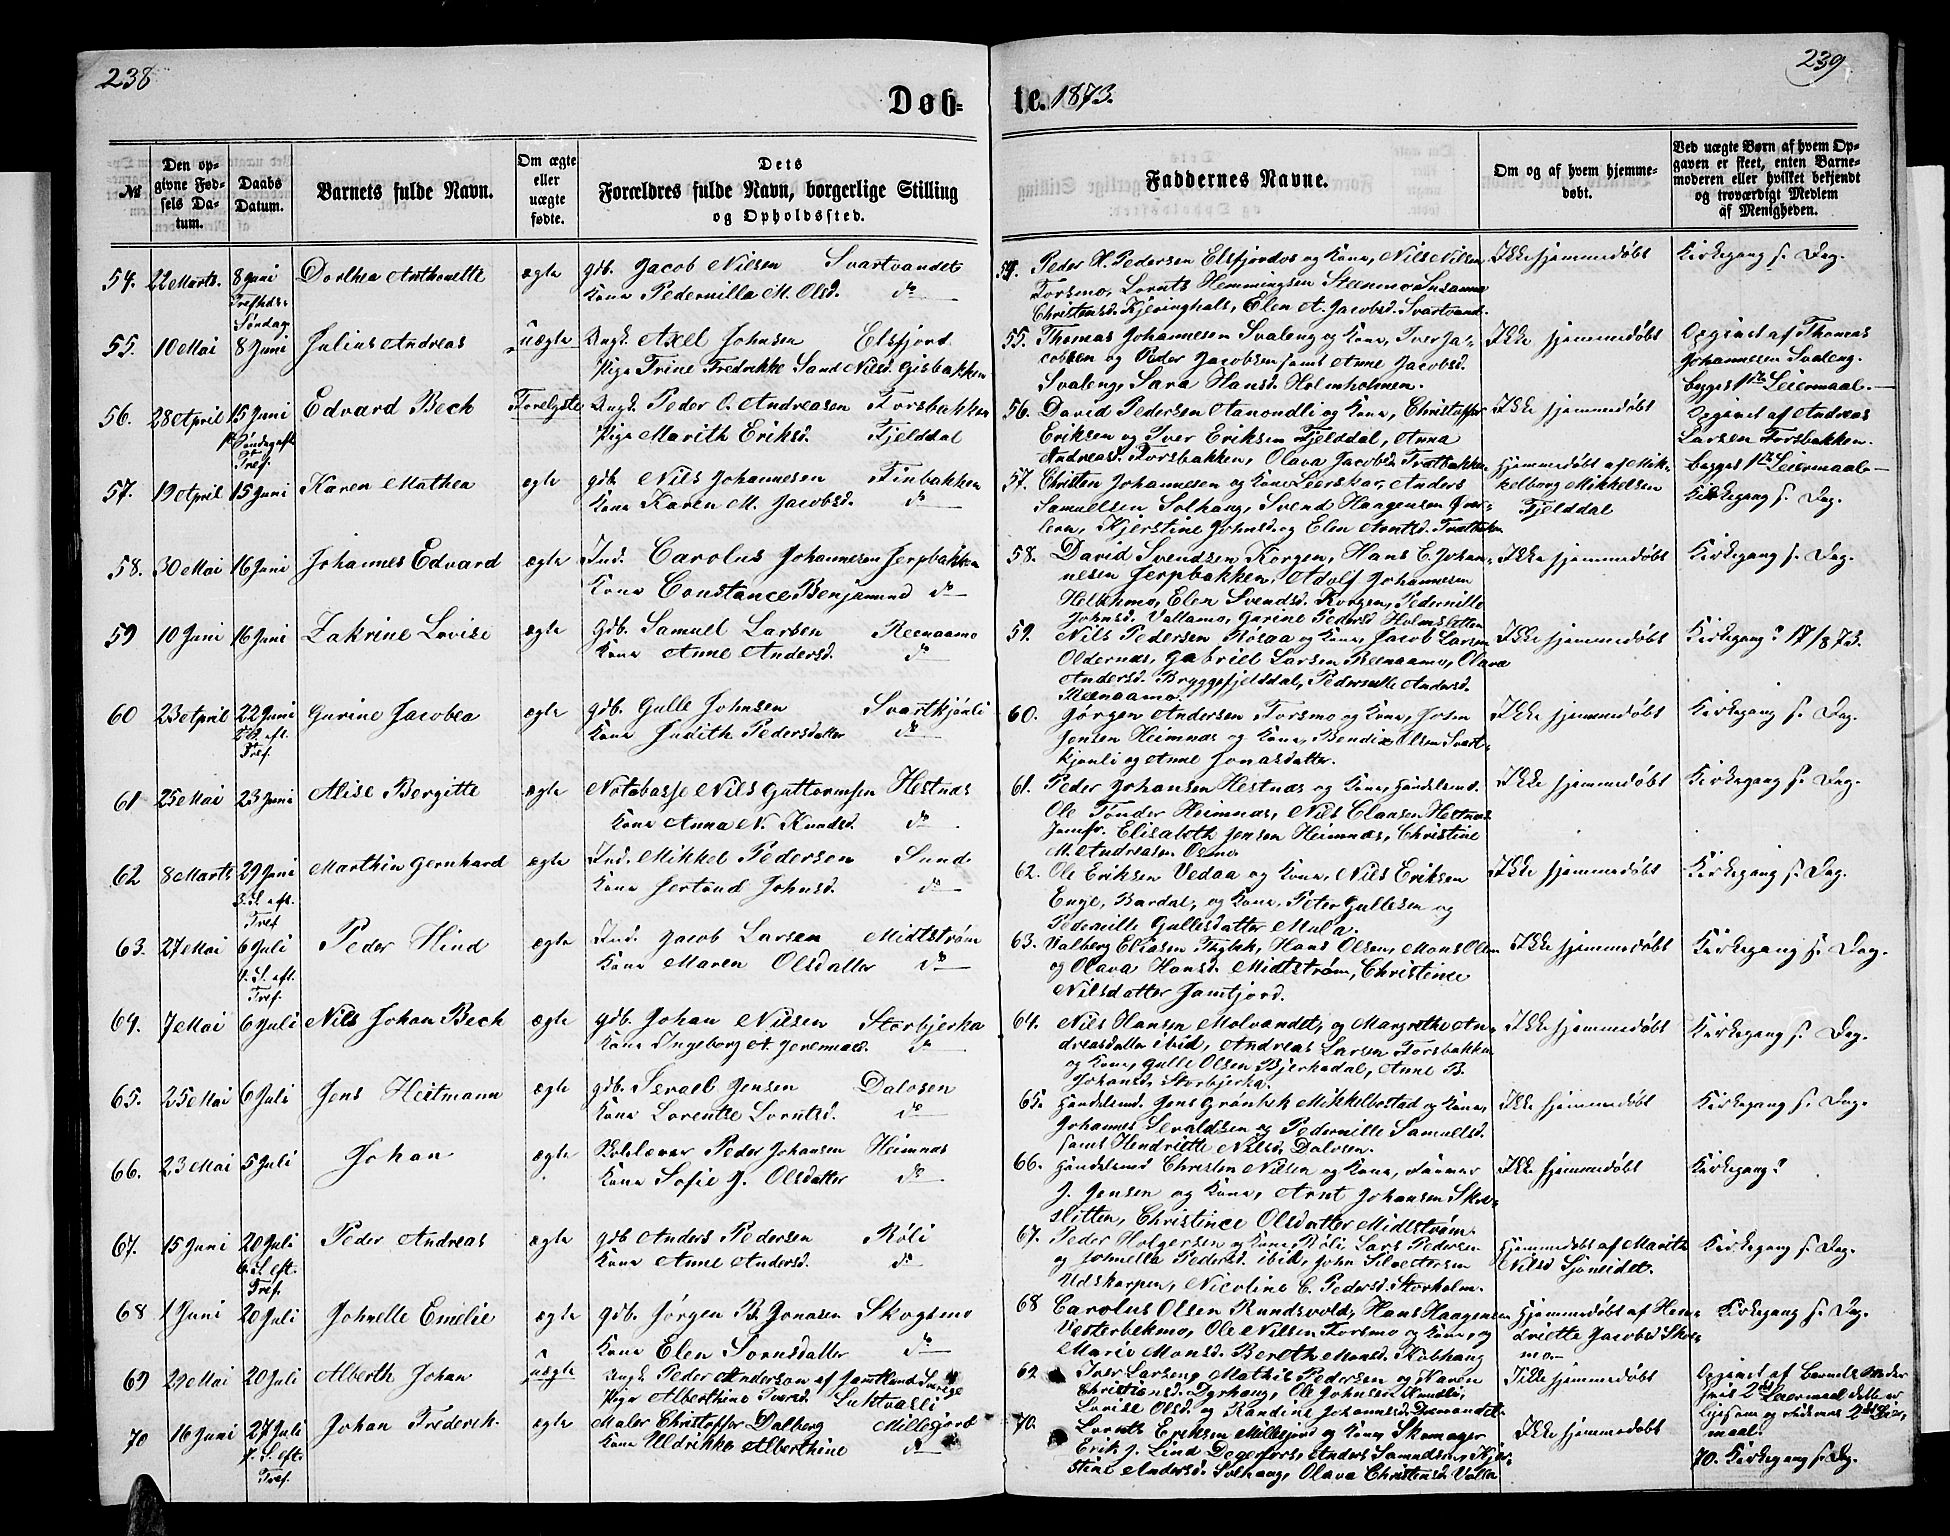 238
239
Døb-
te. 1873.
№
Den op-
givne Fød-
sels Da-
tum.
Daabs
Datum.
Barnets fulde Navn.
Om ægte
eller
uægte
fødte.
Dets
Forældres fulde Navn, borgerlige Stilling
og Opholdssted.
Faddernes Navne.
Om og af hvem hjemme-
døbt.
Ved uægte Børn af hvem Op-
gaven er skeet, enten Barne-
moderen eller hvilket bekjendt
og troværdigt Medlem
af Menigheden.
54. 22 Marts 8 Juni Dorthea Anthonette ægte gdb. Jacob Nilsen Svartvandet
Trefhds:
Søndag
Kone Pedernilla M. Olsd. do
54. Peder H. Pedersen Elsfjordos og Kone, Nils Nilsen
Forsmo, Lornts Hemmingsen Steenmo Susanna
Christensd. Kjeringhals, Elen A. Jacobsd. Svartvand.
Ikke hjemmedøbt
Kirkegang s. Dag.
55. 10 Mai 8 Juni Julius Andreas uægte Ungk. Axel Johnsen Elsfjord
Pige Trine Fredrikke Sand Nilsd. Gisbakken
55. Thomas Johannesen Svaleng og Kone, Iver Ja-
cobsen og Peder Jacobsen samt Anne Jacobsd.
Svaleng, Sara Hansd. Holmholmen.
Ikke hjemmedøbt
Opgivet af Thomas
Johannesen Svaleng.
begges 1ste Leiermaal.
56. 28 April 15 Juni Edvard Bech Forelgste Ungk. Peder O. Andreasen Forsbakken
1ste Søndag eft.
Tref.
Pige Marith Eriksd. Fjelddal
56. David Pedersen Aanondli og Kone, Christoffer
Eriksen og Iver Eriksen Fjelddal, Anna
Andreasd. Forsbakken, Olava Jacobsd. Trætbakken
Ikke hjemmedøbt
Opgivet af Andreas
Larsen Forsbakken.
begges 1ste Leiermaal
57. 19 April 15 Juni Karen Mathea ægte gdb. Nils Johannesen Finbakken
Kone Karen M. Jacobsd. do
57. Christen Johannesen og Kone Leerskar, Anders
Samuelsen Solhaug, Svend Haagensen
Kjerstine Johnsd. og Elen Arntsd.
Hjemmedøbt af Mik-
kelborg Mikkelsen
Fjelddal
Kirkegang s. Dag.
58. 30 Mai 16 Juni Johannes Edvard ægte Ind. Carolus Johannesen Jerpbakken
Kone Constance Benjamind do
58. David Svendsen Korgen, Hans E. Johan-
nesen Jerpbakken, Adolf Johannesen
Elen Svendsd. Korgen, Pedernille
Johnsd. Vallamo, Gurine Pedersd. Holmsletten
Ikke hjemmedøbt
Kirkegang s. Dag.
59 10 Juni 16 Juni Zakrine Lovise ægte Gdb. Samuel Larsen Reenaamo
Kone Anne Andersd. do
59. Nils Pedersen Rösaa og Kone, Jacob Larsen
Oldernæs, Gabriel Larsen Reenaamo, Olava
Andersd. Bryggefjelddal, Pedernille Andersd.
Reenaamo.
Ikke hjemmedøbt
Kirkegang? 17/8 73.
60 23 April 22 Juni Gurine Jacobea ægte gdb. Gulle Johnsen Svartkjönli
2 S. eft.
Tref.
Kone Judith Pedersdatter do
60. Jörgen Andersen Forsmo og Kone, Josen
Jensen Heimnæs og Kone, Bendix Olsen Svart-
kjönli og Anne Jonasdatter.
Ikke hjemmedøbt
Kirkegang s. Dag.
61 25 Mai 23 Juni Alise Bergitte ægte Notebasse Nils Guttormsen Hestnæs
Kone Anna N. Knudsd. do
61. Peder Johansen Hestnæs og Kone, Handelsmd.
Ole Tonder Heimnæs, Nils Clausen Hestnæs
Jomfr. Elisabeth Jensen Heimnæs, Christine
M. Andreasen Osmo
Ikke hjemmedøbt
Kirkegang s. Dag.
62 8 Marts 29 Juni Marthin Gernhard ægte Ind. Mikkel Pedersen Sund
3. S. eft.
Tref
Kone Jertrud Johnsd. do
62. Ole Eriksen Vedaa og Kone, Nils Eriksen
Enge, Bardal, og Kone, Peter Gullesen og
Pedernille Gullesdatter Mula.
Ikke hjemmedøbt
Kirkegang s. Dag.
63. 27 Mai 6 Juli Peder Hind ægte Ind. Jacob Larsen Midtström
4. S. eft.
Tref.
Kone Maren Olsdatter do
63. Valberg Eliasen Fagbek, Hans Olsen, Mons Olsen
og Olava Hansd. Midtström, Christine
Nilsdatter Jamtjord.
Ikke hjemmedøbt
Kirkegang s. Dag.
64. 7 Mai 6 Juli Nils Johan Bech ægte gdb. Johan Nilsen Storbjerka
Kone Ingeborg A. Jeremiasd. do
64. Nils Hansen Molvandet, og Margrethe An-
dreasdatter ibid, Andreas Larsen Forsbakken
og Kone, Gulle Olsen Bjerkadal, Anne B.
Johansd. Storbjerka.
Ikke hjemmedøbt
Kirkegang s. Dag.
65. 25 Mai 6 Juli Jens Heitmann ægte gdb. Sevael Jensen Dalosen
Kone Lorentse Lorntsd. do
65. Handelsmd. Jens Grönbek Mikkelbostad og Kone,
Johannes Sevaldsen og Pedernille Samuelsd.
samt Hendriette Nilsd. Dalosen.
Ikke hjemmedøbt
Kirkegang s. Dag.
66. 23 Mai 5 Juli Johan ægte Skolelærer Peder Johansen Heimnæs
Kone Sofie J. Olsdatter do
66. Handelsmd Christen Nilsen og Kone,
J. Jensen og Kone, Arnt Johansen Skre-
slitten, Christince Olsdatter Midtström
Ikke hjemmedøbt
Kirkegang?
67. 15 Juni 20 Juli Peder Andreas ægte gdb Anders Pedersen Röli
6. S. eft.
Tref.
Kone Anne Andersd. do
67. Peder Holgersen og Kone Röli Lars Pedersen
og Johnella Pedersd. ibid, John
Udskarpen, Nicoline C. Pedersd. Storholm.
Hjemmedøbt af Marith
Nilsd Sjöneidet.
Kirkegang s. Dag.
68 1 Juni 20 Juli Johnelle Emelie ægte gdb. Jörgen B. Jonasen Skogsmo
Kone Elen Sornsdatter do
68 Carolus Olsen Rundsvold, Hans Haagensen
Vesterbekmo, Ole Nilsen Forsmo og Kone, og
Marie Monsd. Bereth Monsd. Kobhaug
Hjemmedøbt af Hen-
driette Jacobsd Skogs-
mo
Kirkegang s. Dag.
69 29 Mai 20 Juli Alberth Johan uægte Ungk. Peder Anderson af Jemtland Sverige
Pige Alberthine Iversd. Luktvasli
69 Iver Larsen, Mathis Pedersen og Maren
Christiansd. Dyrhaug, Ole Johnsen
Lovise Olsd. og Randine Johannesd.
Ikke hjemmedøbt
Opgivet af Barnets Moder
hvis 2det Leiermaal dette er
Ligesom og hans 2det Leier-
maal.
70 16 Juni 27 Juli Johan Frederik ægte Maler Christoffer Dalberg Millesjord
7. S. eft.
Tref.
Kone Uldrikka Alberthine do
70. Lornts Eriksen Millesjord og Kone, Skomager
Erik J. Lind Degerfors, Anders Samuelsen, Kjer-
stine Andersd. Solhaug, Olava Christensd.
Ikke hjemmedøbt
70. Kirkegang s. Dag.